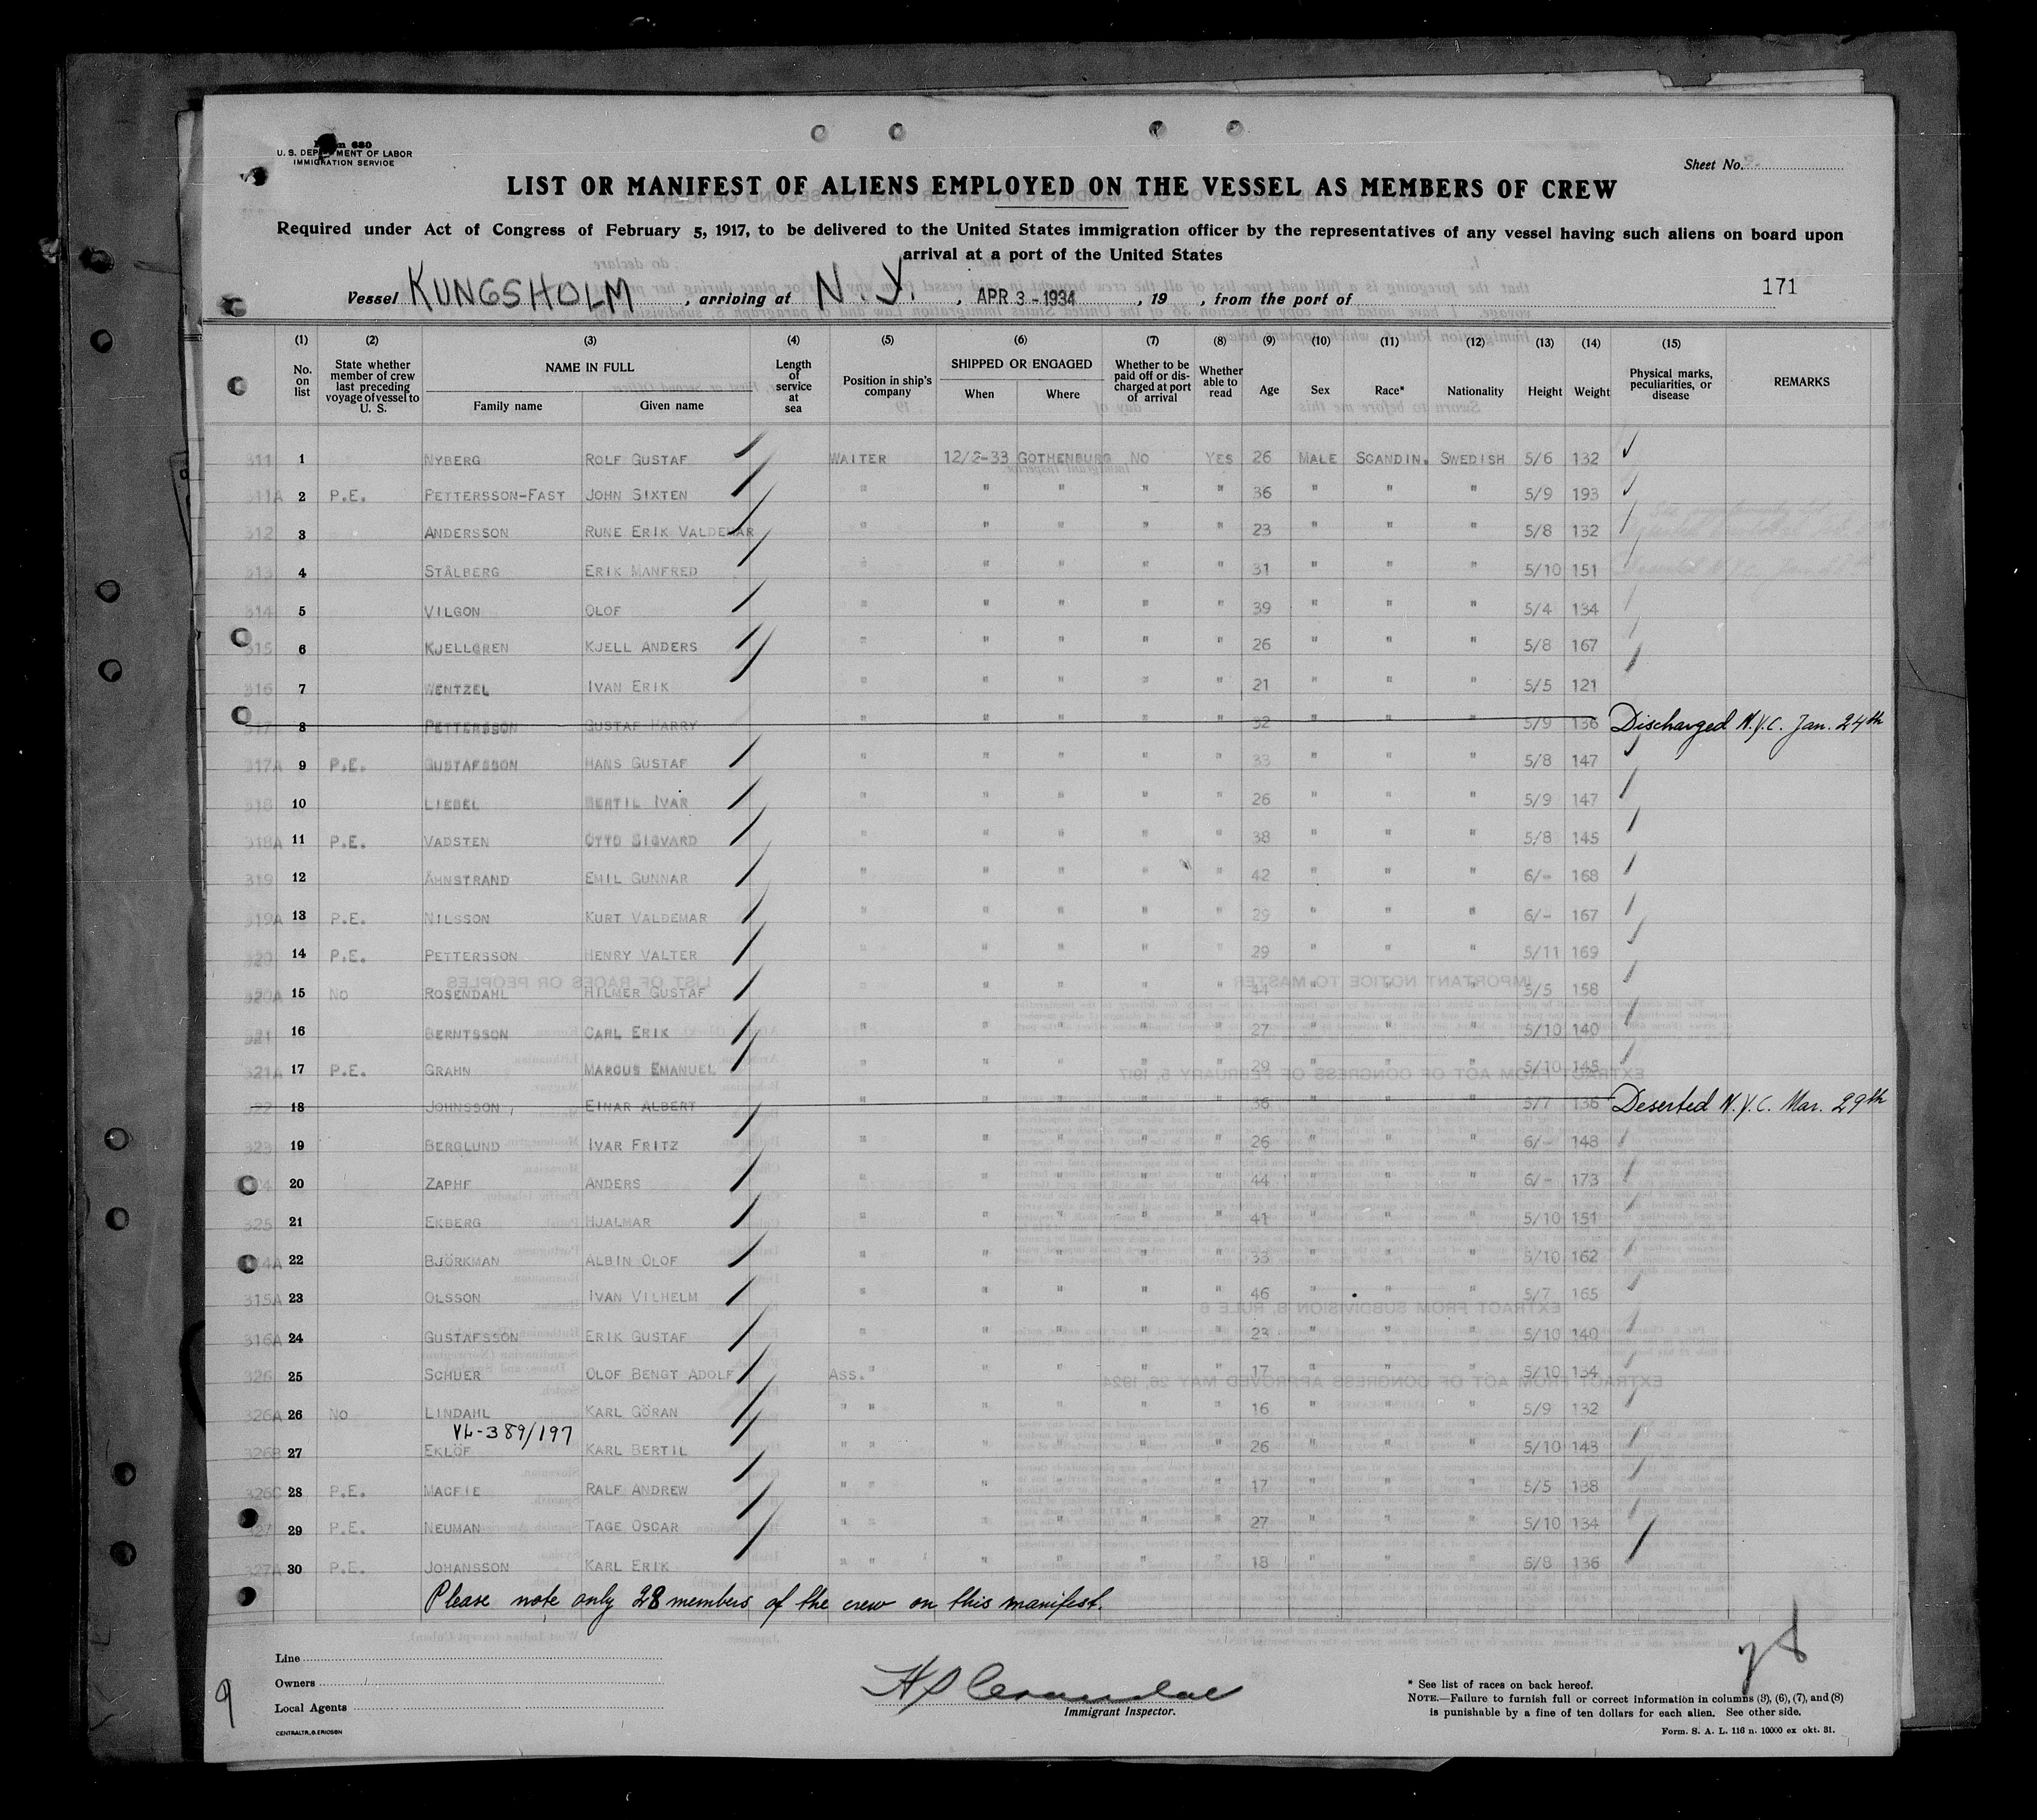 Form 680
U. S. DEPARTMENT OF LABOR
IMMIGRATION SERVICE
Sheet No.
LIST OR MANIFEST OF ALIENS EMPLOYED ON THE VESSEL AS MEMBERS OF CREW
Required under Act of Congress of February 5, 1917, to be delivered to the United States immigration officer by the representatives of any vessel having such aliens on board upon
arrival at a port of the United States
Vessel KUNGSHOLM, arriving at N. Y., APR 3-1934, 19 , from the port of
171
(1) (2) (3) (4) (5) (6) (7) (8) (9) (10) (11) (12) (13) (14) (15)
No. on list State whether member of crew last preceding voyage of vessel to U. S. NAME IN FULL Family name Given name Length of service at sea Position in ship's company SHIPPED OR ENGAGED When Where Whether to be paid off or discharged at port of arrival Whether able to read Age Sex Race* Nationality Height Weight Physical marks, peculiarities, or disease REMARKS
311 1 NYBERG ROLF GUSTAF WAITER 12/2-33 GOTHENBURG NO YES 26 MALE SCANDIN. SWEDISH 5/6 132
311A 2 P.E. PETTERSSON-FAST JOHN SIXTEN " " " " " 36 " " " 5/9 193
312 3 ANDERSSON RUNE ERIK VALDEMAR " " " " " 23 " " " 5/8 132
313 4 STÅLBERG ERIK MANFRED " " " " " 31 " " " 5/10 151
314 5 VILGON OLOF " " " " " 39 " " " 5/4 134
315 6 KJELLGREN KJELL ANDERS " " " " " 26 " " " 5/8 167
316 7 WENTZEL IVAN ERIK " " " " " 21 " " " 5/5 121
317 8 PETTERSSON GUSTAF HARRY " " " " " 32 " " " 5/9 136 Discharged N.Y.C. Jan. 24th
317A 9 P.E. GUSTAFSSON HANS GUSTAF " " " " " 33 " " " 5/8 147
318 10 LIEBEL BERTIL IVAR " " " " " 26 " " " 5/9 147
318A 11 P.E. VADSTEN OTTO SIGVARD " " " " " 38 " " " 5/8 145
319 12 ÅHNSTRAND EMIL GUNNAR " " " " " 42 " " " 6/- 168
319A 13 P.E. NILSSON KURT VALDEMAR " " " " " 29 " " " 6/- 167
320 14 P.E. PETTERSSON HENRY VALTER " " " " " 29 " " " 5/11 169
320A 15 NO ROSENDAHL HILMER GUSTAF " " " " " 44 " " " 5/5 158
321 16 BERNTSSON CARL ERIK " " " " " 27 " " " 5/10 140
321A 17 P.E. GRAHN MARCUS EMANUEL " " " " " 29 " " " 5/10 145
322 18 JOHNSSON EINAR ALBERT " " " " " 36 " " " 5/7 136 Deserted N.Y.C. Mar. 29th
323 19 BERGLUND IVAR FRITZ " " " " " 26 " " " 6/- 148
324 20 ZAPHE ANDERS " " " " " 44 " " " 6/- 173
325 21 EKBERG HJALMAR " " " " " 41 " " " 5/10 151
314A 22 BJÖRKMAN ALBIN OLOF " " " " " 33 " " " 5/10 162
315A 23 OLSSON IVAN VILHELM " " " " " 46 " " " 5/7 165
316A 24 GUSTAFSSON ERIK GUSTAF " " " " " 23 " " " 5/10 140
326 25 SCHUER OLOF BENGT ADOLF ASS." " " " " 17 " " " 5/10 134
326A 26 NO LINDAHL KARL GÖRAN " " " " " " 16 " " " 5/9 132
VL-389/197
326B 27 EKLÖF KARL BERTIL " " " " " " 26 " " " 5/10 143
326C 28 P.E. MACFIE RALF ANDREW " " " " " " 17 " " " 5/5 138
327 29 P.E. NEUMAN TAGE OSCAR " " " " " " 27 " " " 5/10 134
327A 30 P.E. JOHANSSON KARL ERIK " " " " " " 18 " " " 5/8 136
Please note only 28 members of the crew on this manifest.
Line
Owners
Local Agents
9
CENTRALTR., G. ERICSON
Immigrant Inspector.
* See list of races on back hereof.
NOTE.—Failure to furnish full or correct information in columns (3), (6), (7), and (8)
is punishable by a fine of ten dollars for each alien. See other side.
Form. S. A. L. 116 n. 10000 ex okt. 31.